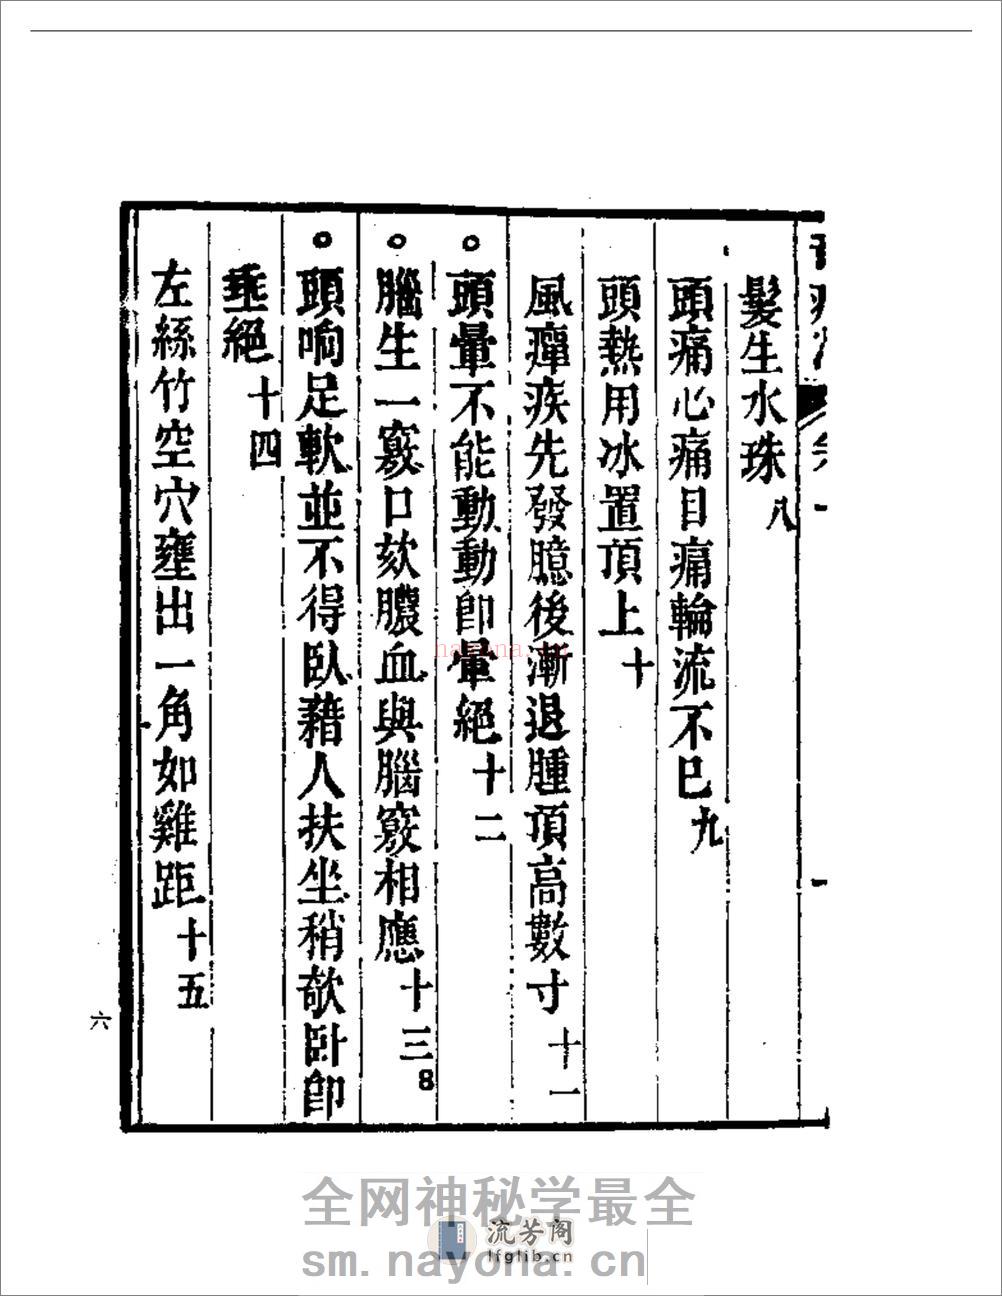 髮生水珠八
頭痛心痛目痛輪流不已九
頭熱用冰置頂上十
風癉疾先發臆後漸退腫頂高數寸十一
○頭暈不能動動即暈絕十二
○腦生一竅口欬膿血與腦竅相應十三
8
○頭响足軟並不得臥藉人扶坐稍欹卧即
垂絕十四
左絲竹空穴壅出一角如雞距十五
六
nayona.cn
全网神秘学最全
流芳阁
lfglib.cn
sm.nayona.cn